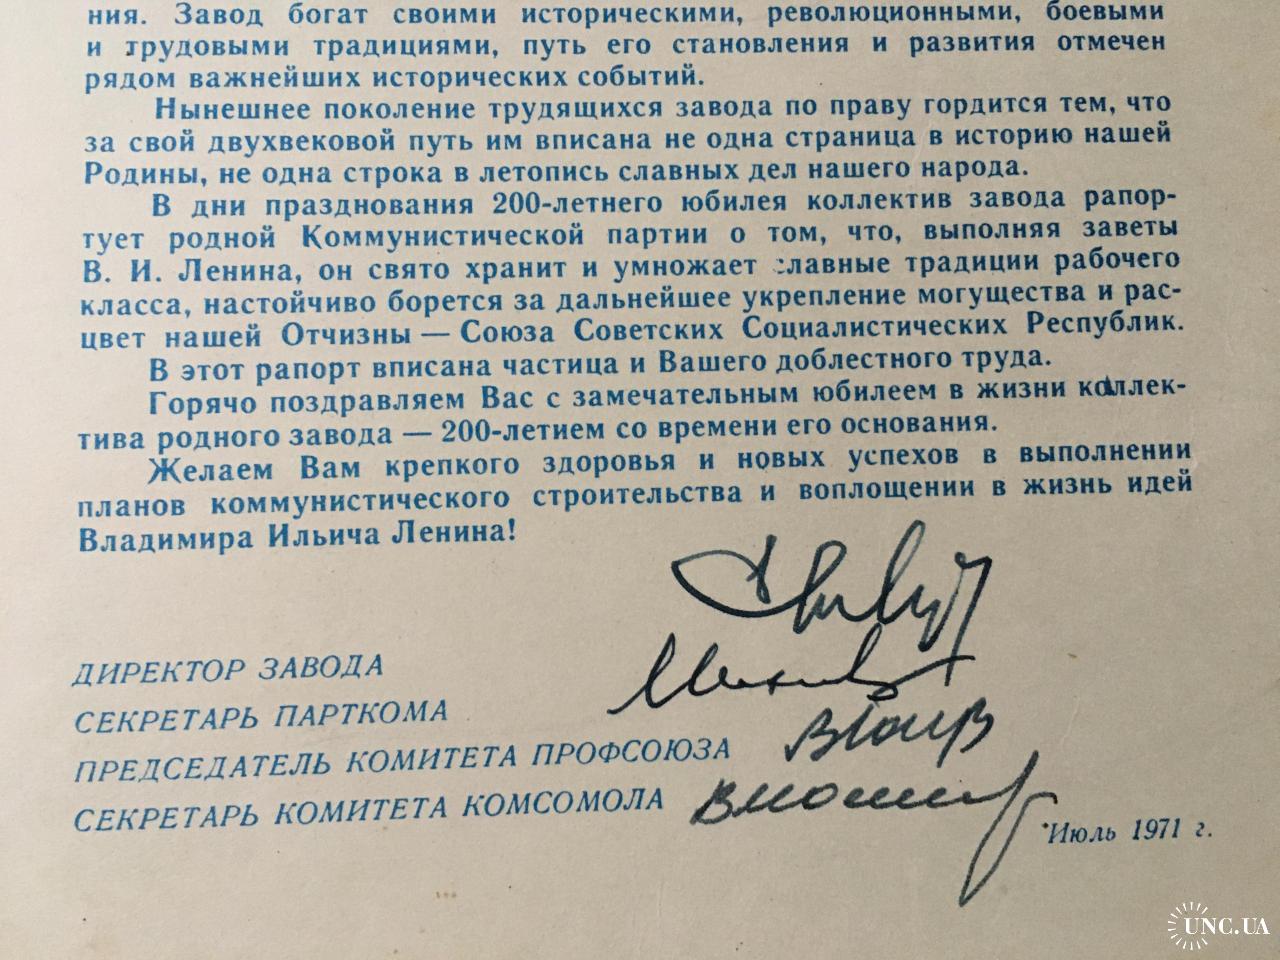 ния. Завод богат своими историческими, революционными, боевыми
и трудовыми традициями, путь его становления и развития отмечен
рядом важнейших исторических событий.
Нынешнее поколение трудящихся завода по праву гордится тем, что
за свой двухвековой путь им вписана не одна страница в историю нашей
Родины, не одна строка в летопись славных дел нашего народа.
В дни празднования 200-летнего юбилея коллектив завода рапор-
тует родной Коммунистической партии о том, что, выполняя заветы
В. И. Ленина, он свято хранит и умножает славные традиции рабочего
класса, настойчиво борется за дальнейшее укрепление могущества и рас-
цвет нашей Отчизны — Союза Советских Социалистических Республик.
В этот рапорт вписана частица и Вашего доблестного труда.
Горячо поздравляем Вас с замечательным юбилеем в жизни коллек-
тива родного завода — 200-летием со времени его основания.
Желаем Вам крепкого здоровья и новых успехов в выполнении
планов коммунистического строительства и воплощении в жизнь идей
Владимира Ильича Ленина!
ДИРЕКТОР ЗАВОДА
СЕКРЕТАРЬ ПАРТКОМА
ПРЕДСЕДАТЕЛЬ КОМИТЕТА ПРОФСОЮЗА
СЕКРЕТАРЬ КОМИТЕТА КОМСОМОЛА
Июль 1971 г.
UNC.UA